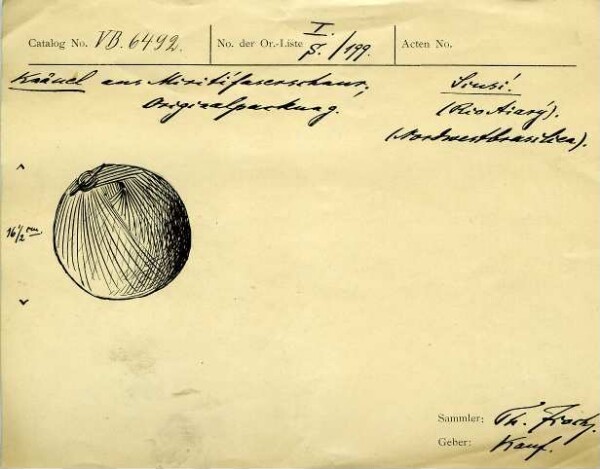 Catalog No. VB. 6492.
No. der Or.-Liste I. /199.
Acten No.
Knäuel aus Miritífaserschnur;
Originalpackung.
Siusí.
(Rio Aiarý).
(Nordwestbrasilien).
16 1/2 cm.
Sammler: Th. Koch.
Geber: Kauf.